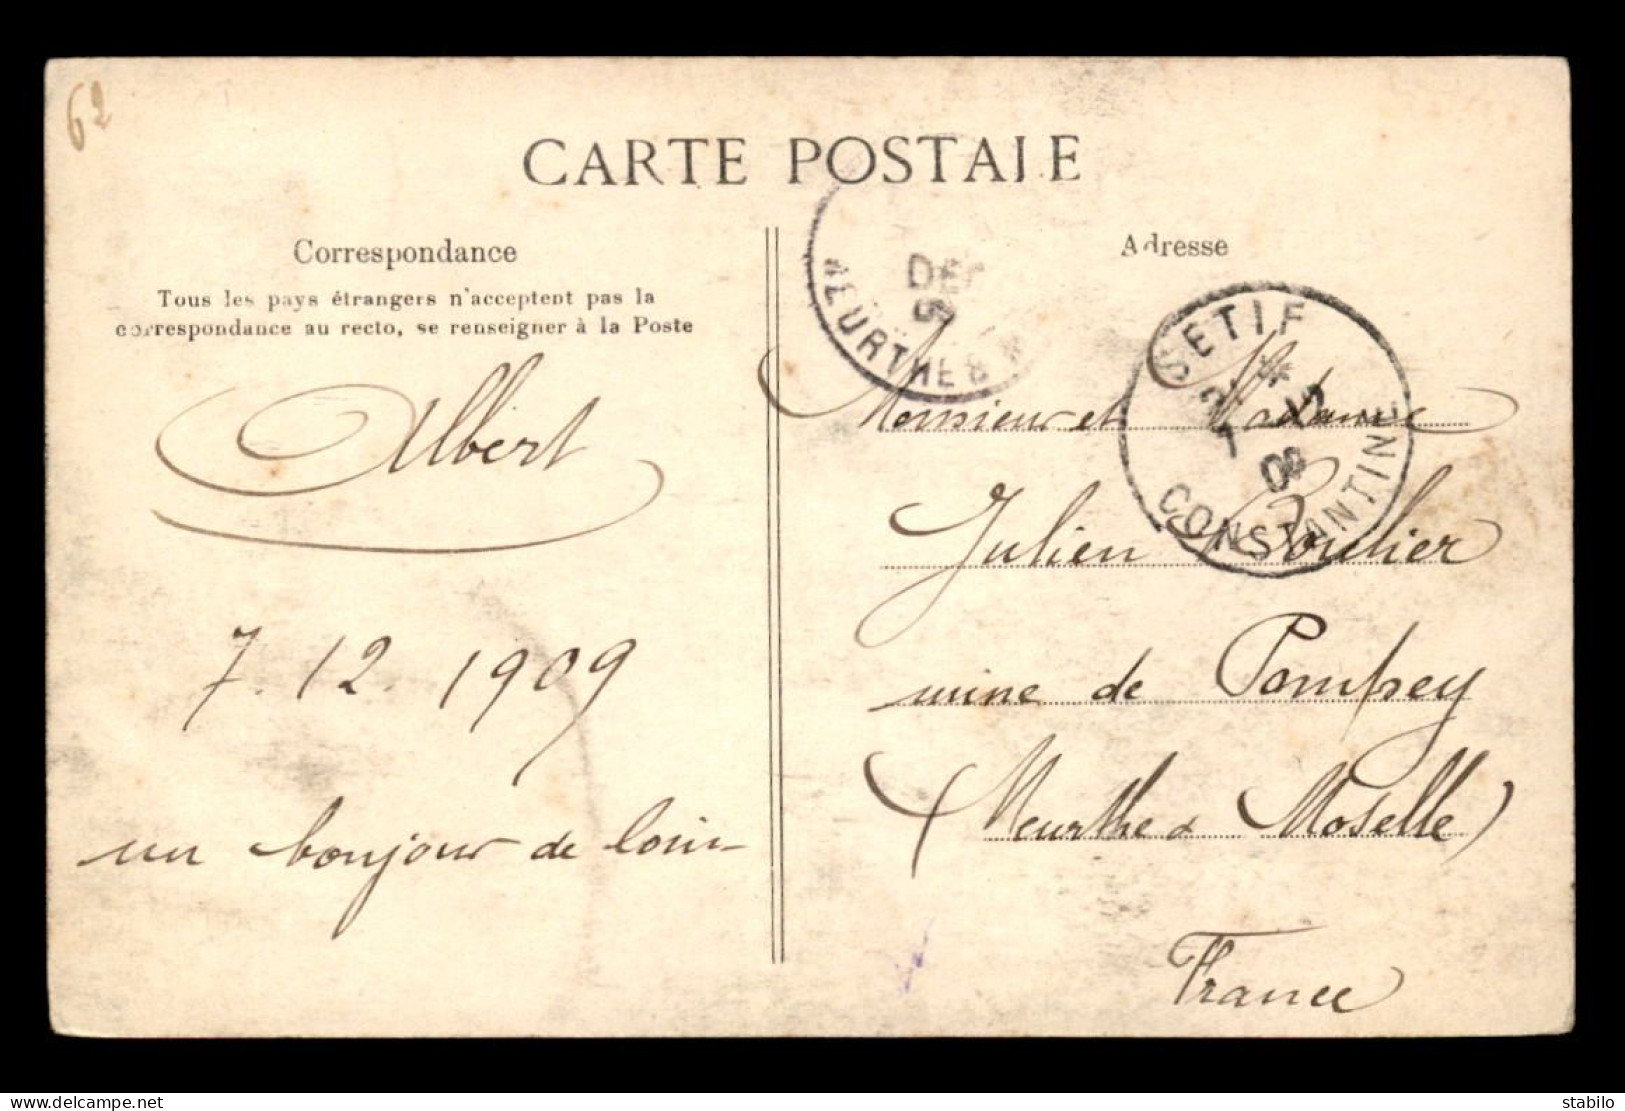 62
CARTE POSTALE
Correspondance
Tous les pays étrangers n'acceptent pas la
correspondance au recto, se renseigner à la Poste
Albert
7. 12. 1909
un bonjour de loin
Adresse
Monsieur et Madame
Julien Boulier
mine de Pompey
(Meurthe & Moselle)
France
DE
MEURTHE &
SETIF
7 12
09
CONSTANTINE
delcampe.net
stabilo